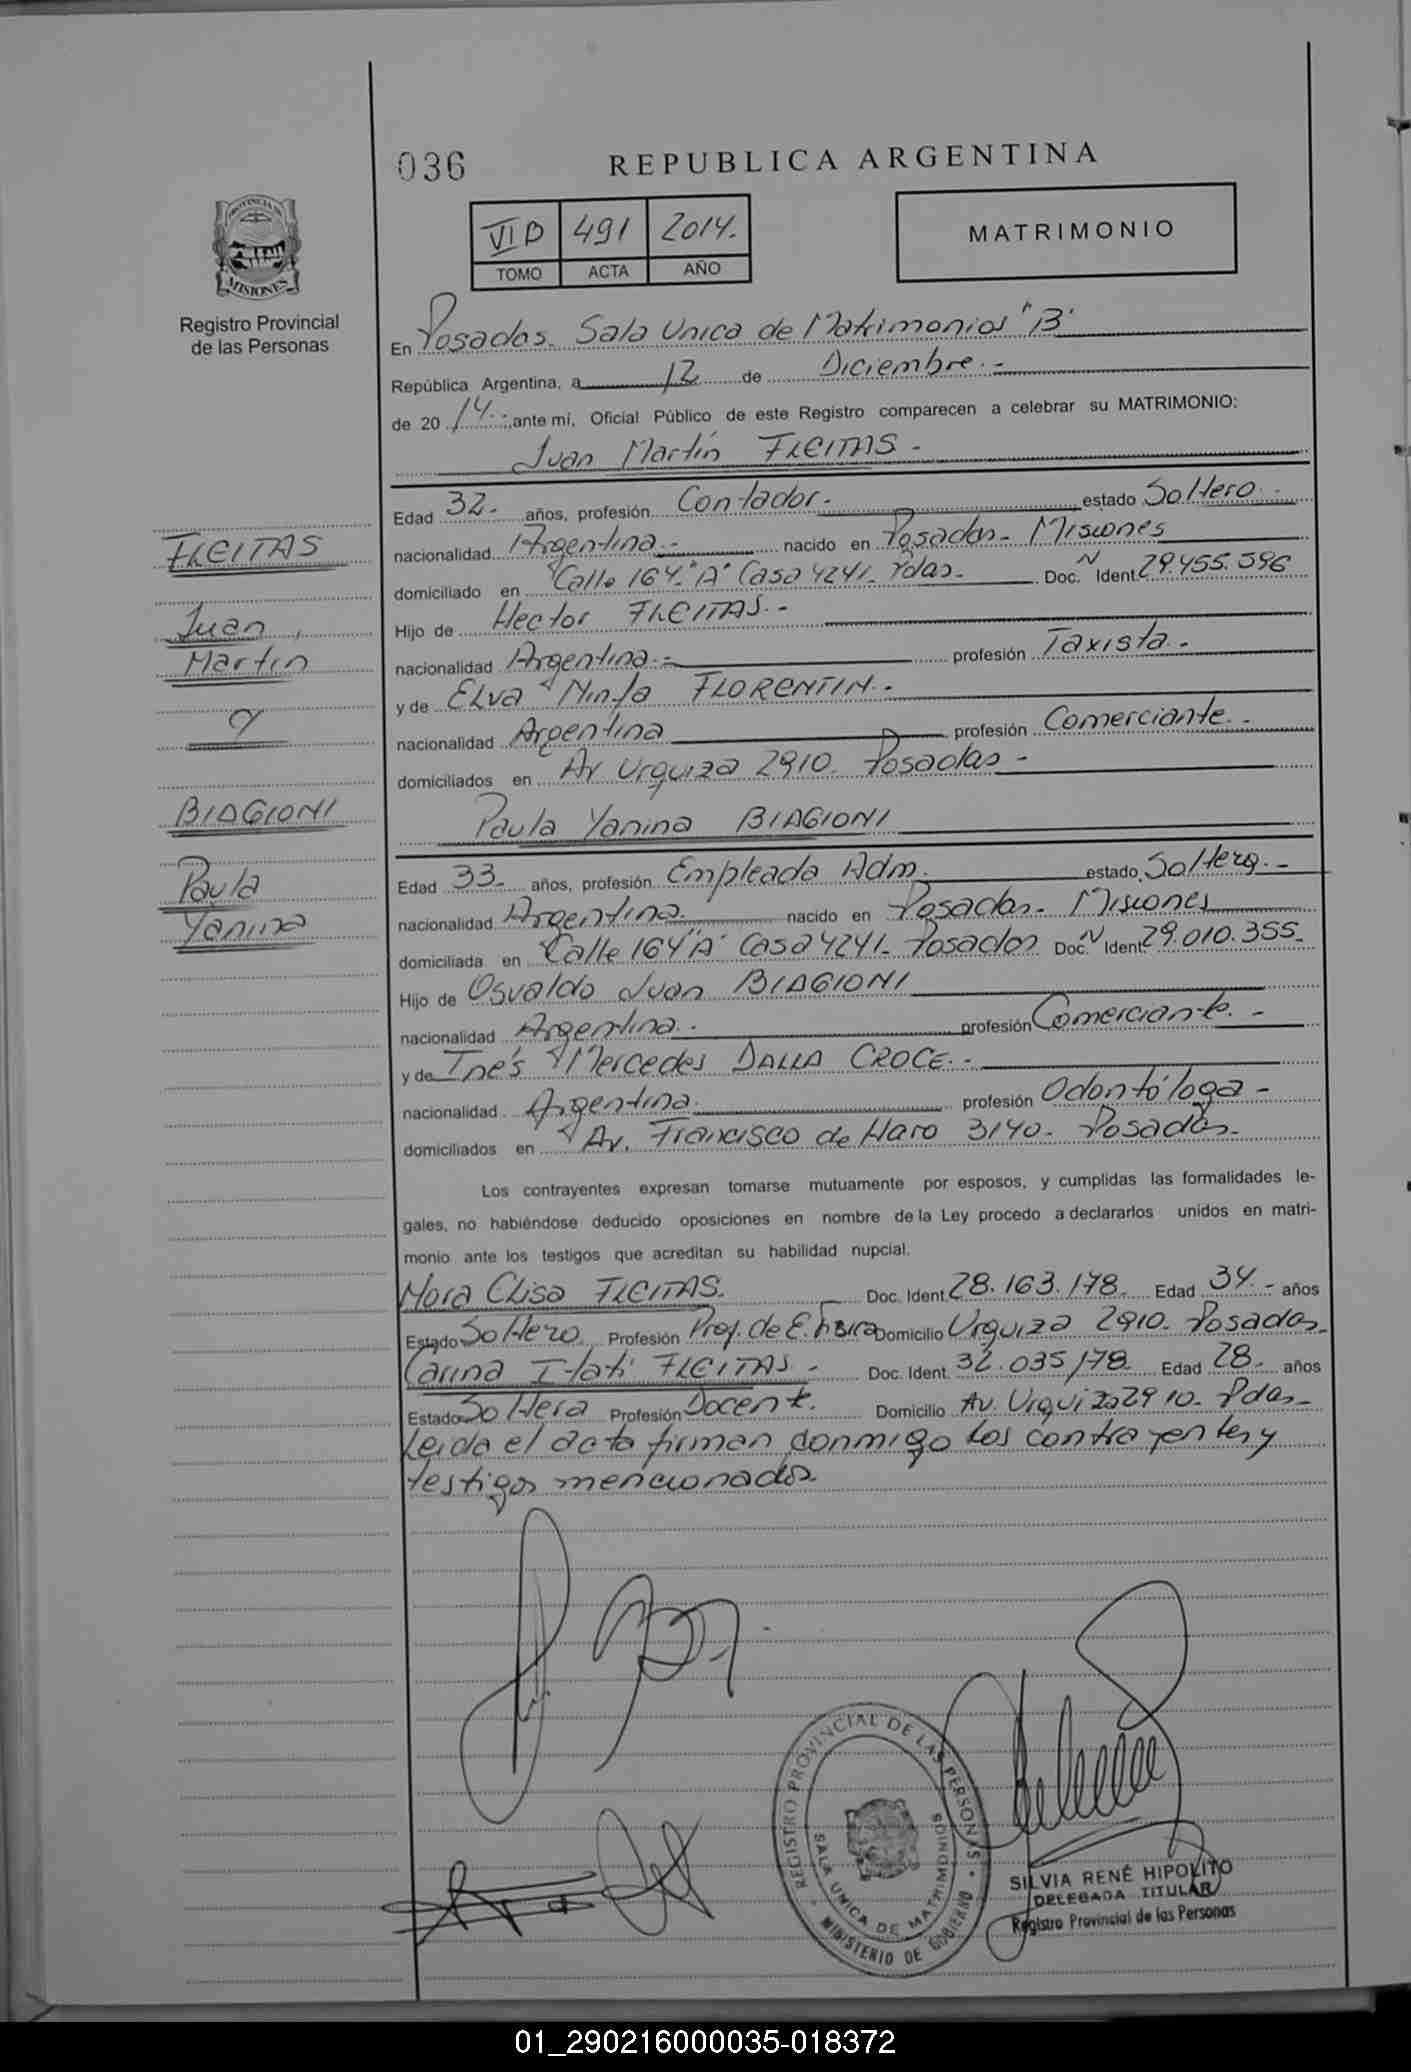 036
REPUBLICA ARGENTINA
VI B 491 2014.
TOMO ACTA AÑO
MATRIMONIO
PROVINCIA DE
MISIONES
Registro Provincial
de las Personas
En Posadas. Sala Unica de Matrimonios "B"
República Argentina, a 12 de Diciembre.-
de 20 14.- ante mí, Oficial Público de este Registro comparecen a celebrar su MATRIMONIO:
Juan Martín FLEITAS -
Edad 32.- años, profesión Contador.- estado Soltero.-
nacionalidad Argentina.- nacido en Posadas- Misiones
domiciliado en Calle 164 "A" Casa 4241- Pdas.- Doc. N Ident. 29.455.596
Hijo de Hector FLEITAS.-
nacionalidad Argentina.- profesión Taxista.-
y de Elva Ninfa FLORENTIN.-
nacionalidad Argentina profesión Comerciante.-
domiciliados en Av Urquiza 2910. Posadas -
Paula Yanina BIAGIONI
Edad 33.- años, profesión Empleada Adm. estado Soltera.-
nacionalidad Argentina. nacido en Posadas- Misiones
domiciliada en Calle 164 "A" Casa 4241- Posadas Doc. N Ident. 29.010.355-
Hijo de Osvaldo Juan BIAGIONI
nacionalidad Argentina.- profesión Comerciante.-
y de Inés Mercedes DALLA CROCE.-
nacionalidad Argentina. profesión Odontóloga -
domiciliados en Av. Francisco de Haro 3140- Posadas.-
Los contrayentes expresan tomarse mutuamente por esposos, y cumplidas las formalidades le-
gales, no habiéndose deducido oposiciones en nombre de la Ley procedo a declararlos unidos en matri-
monio ante los testigos que acreditan su habilidad nupcial.
FLEITAS. Doc. Ident. 28.163.178.- Edad 34.- años
Estado Soltero Profesión Prof. de E. Física Domicilio Urquiza 2910- Posadas-
Carina Itatí FLEITAS.- Doc. Ident. 32.035.178- Edad 28.- años
Estado Soltera Profesión Docente. Domicilio Av. Urquiza 2910- Pdas-
Leida el acta firman conmigo los contrayentes y
testigos mencionados.
FLEITAS
Juan
Martin
y
BIAGIONI
Paula
Yanina
REGISTRO PROVINCIAL DE LAS PERSONAS
SALA UNICA DE MATRIMONIOS
MINISTERIO DE GOBIERNO
SILVIA RENÉ HIPOLITO
DELEGADA TITULAR
Registro Provincial de las Personas
01_290216000035-018372